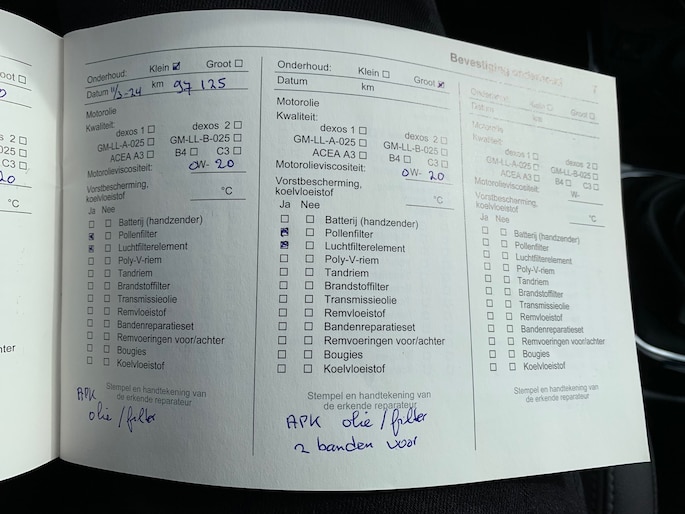 oot ☐
2 ☐
025 ☐
C3 ☐
20
°C
hter
Onderhoud: Klein ☑ Groot ☐
Datum 11/3-24 km 97 125
Motorolie
Kwaliteit:
dexos 1 ☐ dexos 2 ☐
GM-LL-A-025 ☐ GM-LL-B-025 ☐
ACEA A3 ☐ B4 ☐ C3 ☐
Motorolieviscositeit: 0W- 20
Vorstbescherming,
koelvloeistof °C
Ja Nee
☐ ☐ Batterij (handzender)
☒ ☐ Pollenfilter
☒ ☐ Luchtfilterelement
☐ ☐ Poly-V-riem
☐ ☐ Tandriem
☐ ☐ Brandstoffilter
☐ ☐ Transmissieolie
☐ ☐ Remvloeistof
☐ ☐ Bandenreparatieset
☐ ☐ Remvoeringen voor/achter
☐ ☐ Bougies
☐ ☐ Koelvloeistof
Stempel en handtekening van
de erkende reparateur
APK
olie/filter
Onderhoud: Klein ☐ Groot ☒
Datum km
Motorolie
Kwaliteit:
dexos 1 ☐ dexos 2 ☐
GM-LL-A-025 ☐ GM-LL-B-025 ☐
ACEA A3 ☐ B4 ☐ C3 ☐
Motorolieviscositeit: 0W- 20
Vorstbescherming,
koelvloeistof °C
Ja Nee
☐ ☐ Batterij (handzender)
☒ ☐ Pollenfilter
☒ ☐ Luchtfilterelement
☐ ☐ Poly-V-riem
☐ ☐ Tandriem
☐ ☐ Brandstoffilter
☐ ☐ Transmissieolie
☐ ☐ Remvloeistof
☐ ☐ Bandenreparatieset
☐ ☐ Remvoeringen voor/achter
☐ ☐ Bougies
☐ ☐ Koelvloeistof
Stempel en handtekening van
de erkende reparateur
APK olie/filter
2 banden voor
Bevestiging onderhoud
Onderhoud: Klein ☐ Groot ☐
Datum km
Motorolie
Kwaliteit:
dexos 1 ☐ dexos 2 ☐
GM-LL-A-025 ☐ GM-LL-B-025 ☐
ACEA A3 ☐ B4 ☐ C3 ☐
Motorolieviscositeit: W-
Vorstbescherming,
koelvloeistof °C
Ja Nee
☐ ☐ Batterij (handzender)
☐ ☐ Pollenfilter
☐ ☐ Luchtfilterelement
☐ ☐ Poly-V-riem
☐ ☐ Tandriem
☐ ☐ Brandstoffilter
☐ ☐ Transmissieolie
☐ ☐ Remvloeistof
☐ ☐ Bandenreparatieset
☐ ☐ Remvoeringen voor/achter
☐ ☐ Bougies
☐ ☐ Koelvloeistof
Stempel en handtekening van
de erkende reparateur